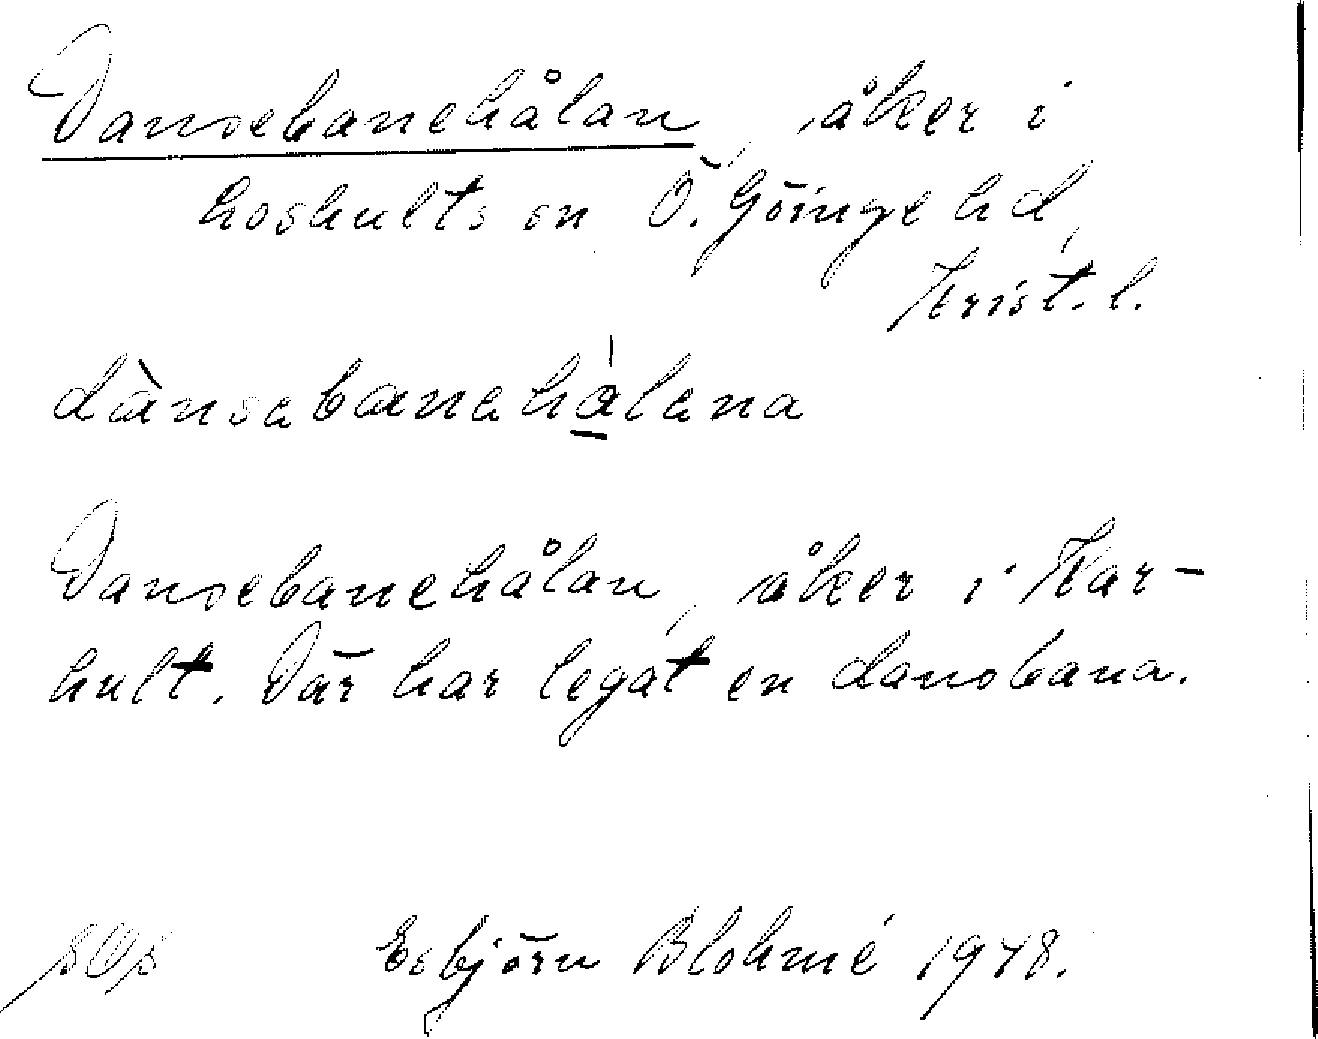 Dansebanehålan, åker i
Loshults sn Ö. Göinge hd,
Krist. l.
dànsabanahálana
Dansebanehålan, åker i Kar-
hult. Där har legat en dansbana.
Esbjörn Blohmé 1948.